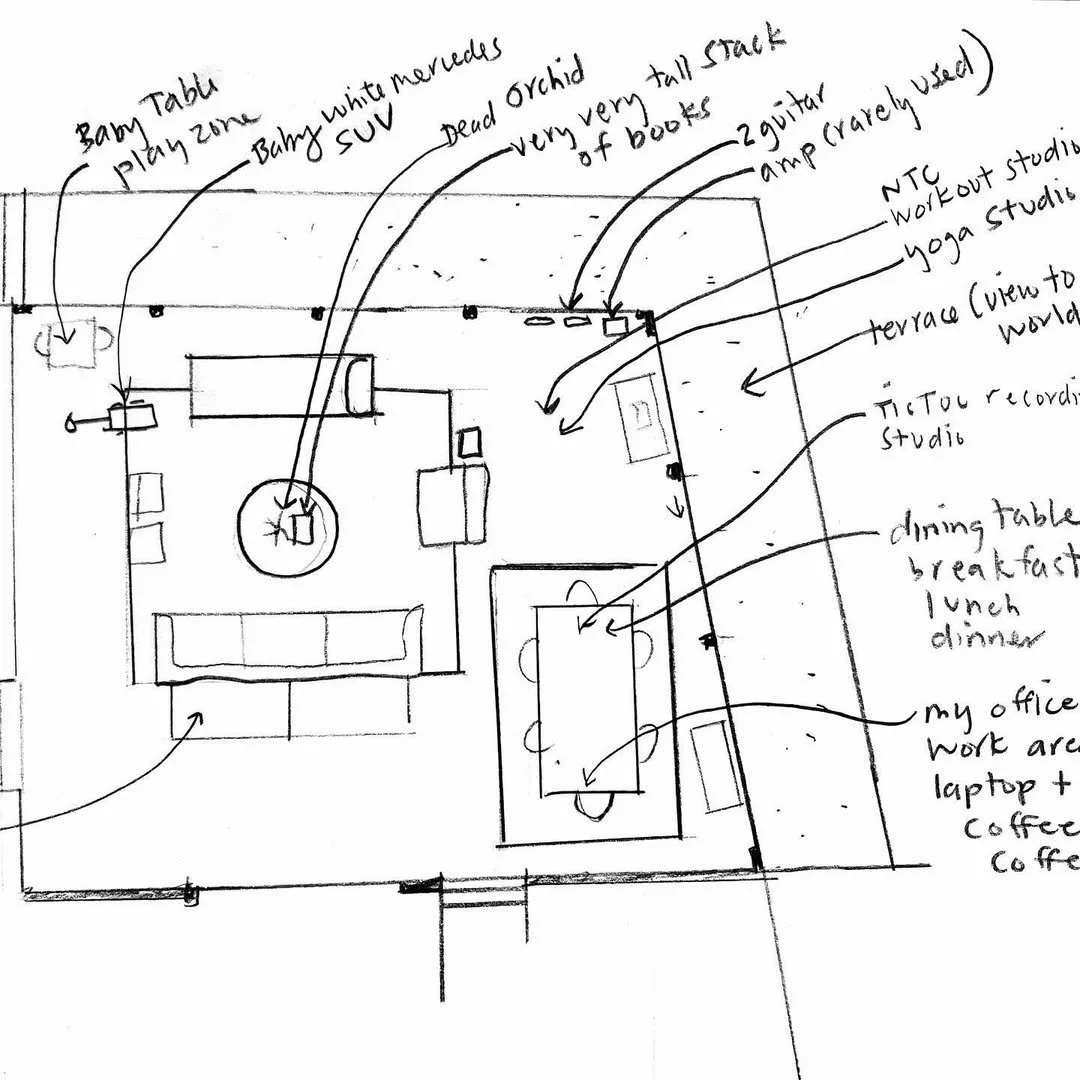 Baby Table
play zone
Baby white mercedes
SUV
Dead Orchid
very very tall stack
of books
2 guitar
amp (rarely used)
NTC
workout studio
yoga studio
terrace (view to
world
TicToc recordi
studio
dining table
breakfast
lunch
dinner
my office
work are
laptop +
coffee
coffe